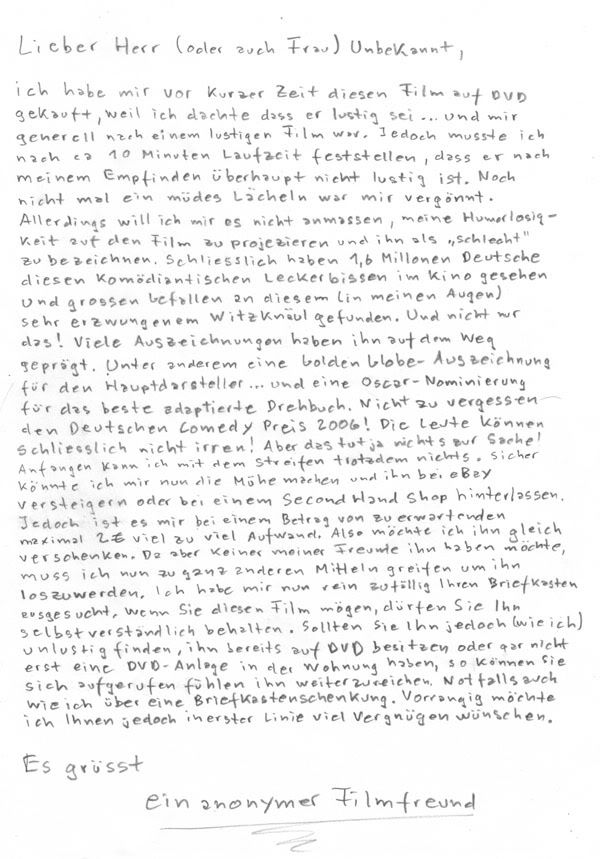 Lieber Herr (oder auch Frau) Unbekannt,
ich habe mir vor kurzer Zeit diesen Film auf DVD
gekauft, weil ich dachte dass er lustig sei ... und mir
generell nach einem lustigen Film war. Jedoch musste ich
nach ca 10 Minuten Laufzeit feststellen, dass er nach
meinem Empfinden überhaupt nicht lustig ist. Noch
nicht mal ein müdes Lächeln war mir vergönnt.
Allerdings will ich mir es nicht anmassen, meine Humorlosig-
keit auf den Film zu projezieren und ihn als „schlecht"
zu bezeichnen. Schliesslich haben 1,6 Millonen Deutsche
diesen Komödiantischen Leckerbissen im Kino gesehen
und grossen Gefallen an diesem (in meinen Augen)
sehr erzwungenem Witzknäul gefunden. Und nicht nur
das! Viele Auszeichnungen haben ihn auf dem Weg
geprägt. Unter anderem eine Golden Globe-Auszeichnung
für den Hauptdarsteller... und eine Oscar-Nominierung
für das beste adaptierte Drehbuch. Nicht zu vergessen
den Deutschen Comedy Preis 2006! Die Leute können
schliesslich nicht irren! Aber das tut ja nichts zur Sache!
Anfangen kann ich mit dem Streifen trotzdem nichts. Sicher
könnte ich mir nun die Mühe machen und ihn bei eBay
versteigern oder bei einem Second Hand Shop hinterlassen.
Jedoch ist es mir bei einem Betrag von zu erwartenden
maximal 2€ viel zu viel Aufwand. Also möchte ich ihn gleich
verschenken. Da aber keiner meiner Freunde ihn haben möchte,
muss ich nun zu ganz anderen Mitteln greifen um ihn
loszuwerden. Ich habe mir nun rein zufällig Ihren Briefkasten
ausgesucht. Wenn Sie diesen Film mögen, dürfen Sie Ihn
selbstverständlich behalten. Sollten Sie Ihn jedoch (wie ich)
unlustig finden, ihn bereits auf DVD besitzen oder gar nicht
erst eine DVD-Anlage in der Wohnung haben, so können Sie
sich aufgerufen fühlen ihn weiterzureichen. Notfalls auch
wie ich über eine Briefkastenschenkung. Vorrangig möchte
ich Ihnen jedoch in erster Linie viel Vergnügen wünschen.
Es grüsst
ein anonymer Filmfreund